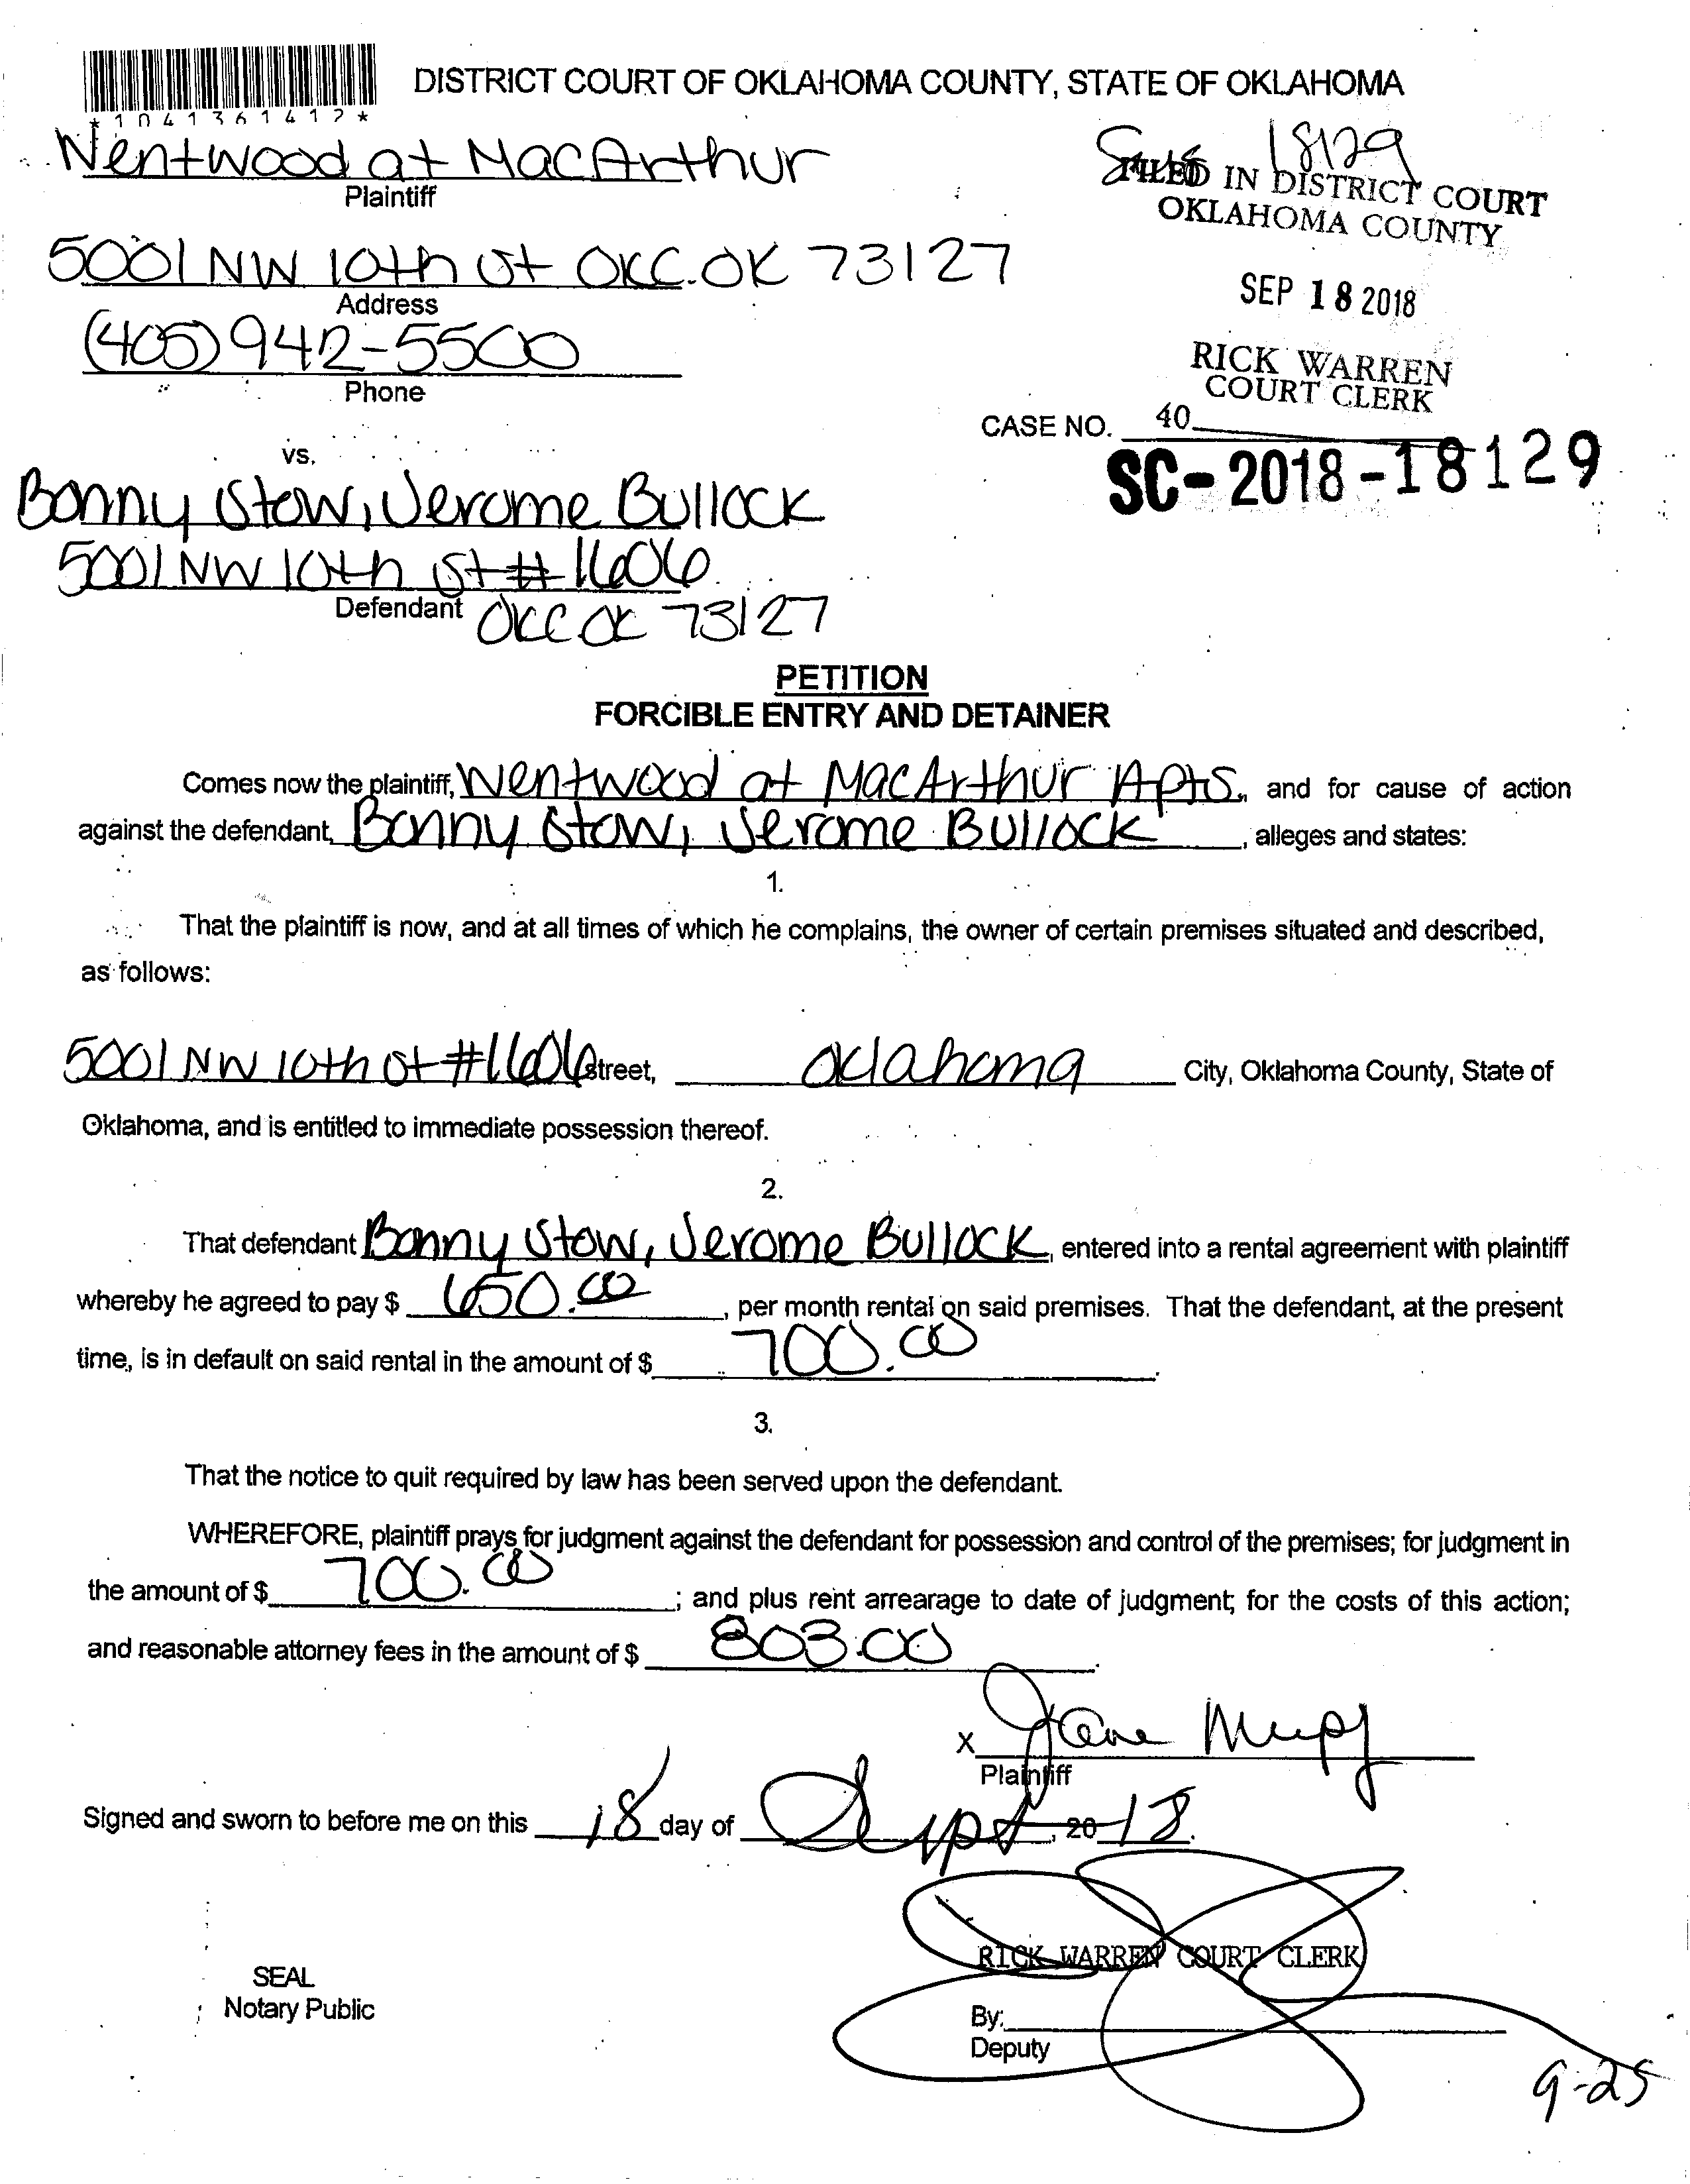 DISTRICT COURT OF OKLAHOMA COUNTY, STATE OF OKLAHOMA
*1041361412*
Wentwood at MacArthur
Plaintiff
18129
FILED IN DISTRICT COURT
OKLAHOMA COUNTY
5001 NW 10th St OKC. OK 73127
Address
SEP 18 2018
(405) 942-5500
Phone
RICK WARREN
COURT CLERK
CASE NO. 40
vs.
SC-2018-18129
Bonny Stow, Jerome Bullock
5001 NW 10th St #1606
Defendant OKC OK 73127
PETITION
FORCIBLE ENTRY AND DETAINER
Comes now the plaintiff, Wentwood at MacArthur Apts, and for cause of action
against the defendant, Bonny Stow, Jerome Bullock, alleges and states:
1.
That the plaintiff is now, and at all times of which he complains, the owner of certain premises situated and described,
as follows:
5001 NW 10th St #1606 street, Oklahoma City, Oklahoma County, State of
Oklahoma, and is entitled to immediate possession thereof.
2.
That defendant Bonny Stow, Jerome Bullock, entered into a rental agreement with plaintiff
whereby he agreed to pay $ 650.00, per month rental on said premises. That the defendant, at the present
time, is in default on said rental in the amount of $ 700.00.
3.
That the notice to quit required by law has been served upon the defendant.
WHEREFORE, plaintiff prays for judgment against the defendant for possession and control of the premises; for judgment in
the amount of $ 700.00; and plus rent arrearage to date of judgment; for the costs of this action;
and reasonable attorney fees in the amount of $ 803.00.
X Jane
Plaintiff
Signed and sworn to before me on this 18 day of Sept, 2018.
RICK WARREN COURT CLERK
SEAL
Notary Public
By:
Deputy
9-25